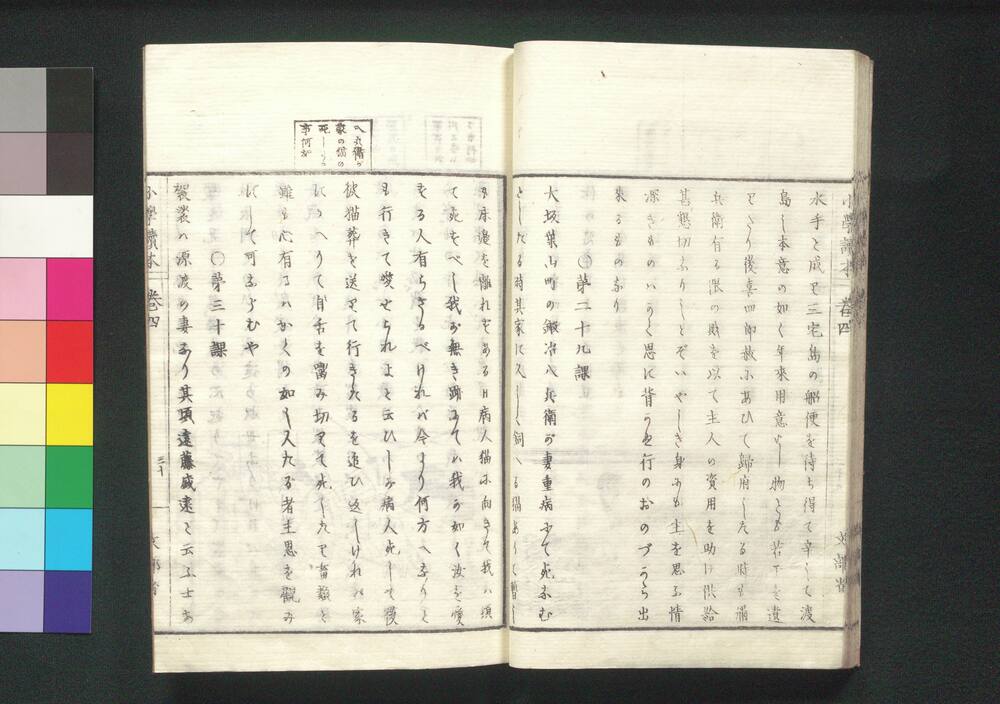 小學讀本 卷四 文部省
水手と成里三宅島の船便を待ち得て辛しで渡
島し本意の如く年來用意せし物とも若干を遺
里たり後喜四郎赦にあひて歸府したる時も彌
兵衛有る限の財を以て主人の資用を助け供給
甚懇切なりしとぞいやしき身にも主を思ふ情
深きものハかく思に背かぬ行のおのづから出
來るものなり
〇第二十九課
大坂葉山町の鍛冶八兵衛が妻重病にて死なむ
としたる時其家に久しく飼へる猫ありて暫し
も床邊を離れずある日病人猫に向きて我ハ須
て死もべし我が無き跡にてハ我が如く汝を愛
する人有らざるべければ今より何方へなりと
も行きて愛せられよと云ひしが病人死して後
彼猫葬を送りて行きたるを追ひ返しけれハ家
にかへりて自舌を嚙み切里て死したり畜類と
雖も心有るハかくの如し人たる者主恩を觀み
ずして可ならむや
〇第三十課
袈裟ハ源渡の妻なり其頃遠藤盛遠と云ふ士あ
小學讀本 卷四 三十 文部省
八兵衛が
家の猫の
死しゝハ
事何如